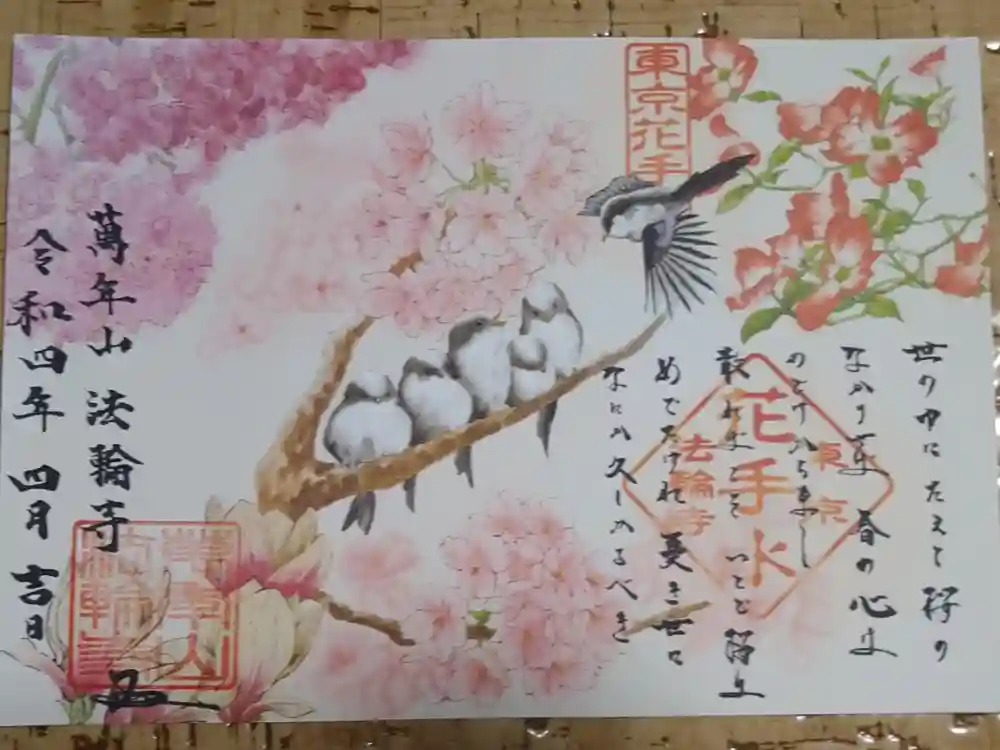 東京花手
世の中にたえて桜の
なかりせば 春の心は
のどけからまし
散ればこそ いとど桜は
めでたけれ 憂き世に
なにか久しかるべき
東京
花手水
法輪寺
萬年山 法輪寺
令和四年 四月吉日